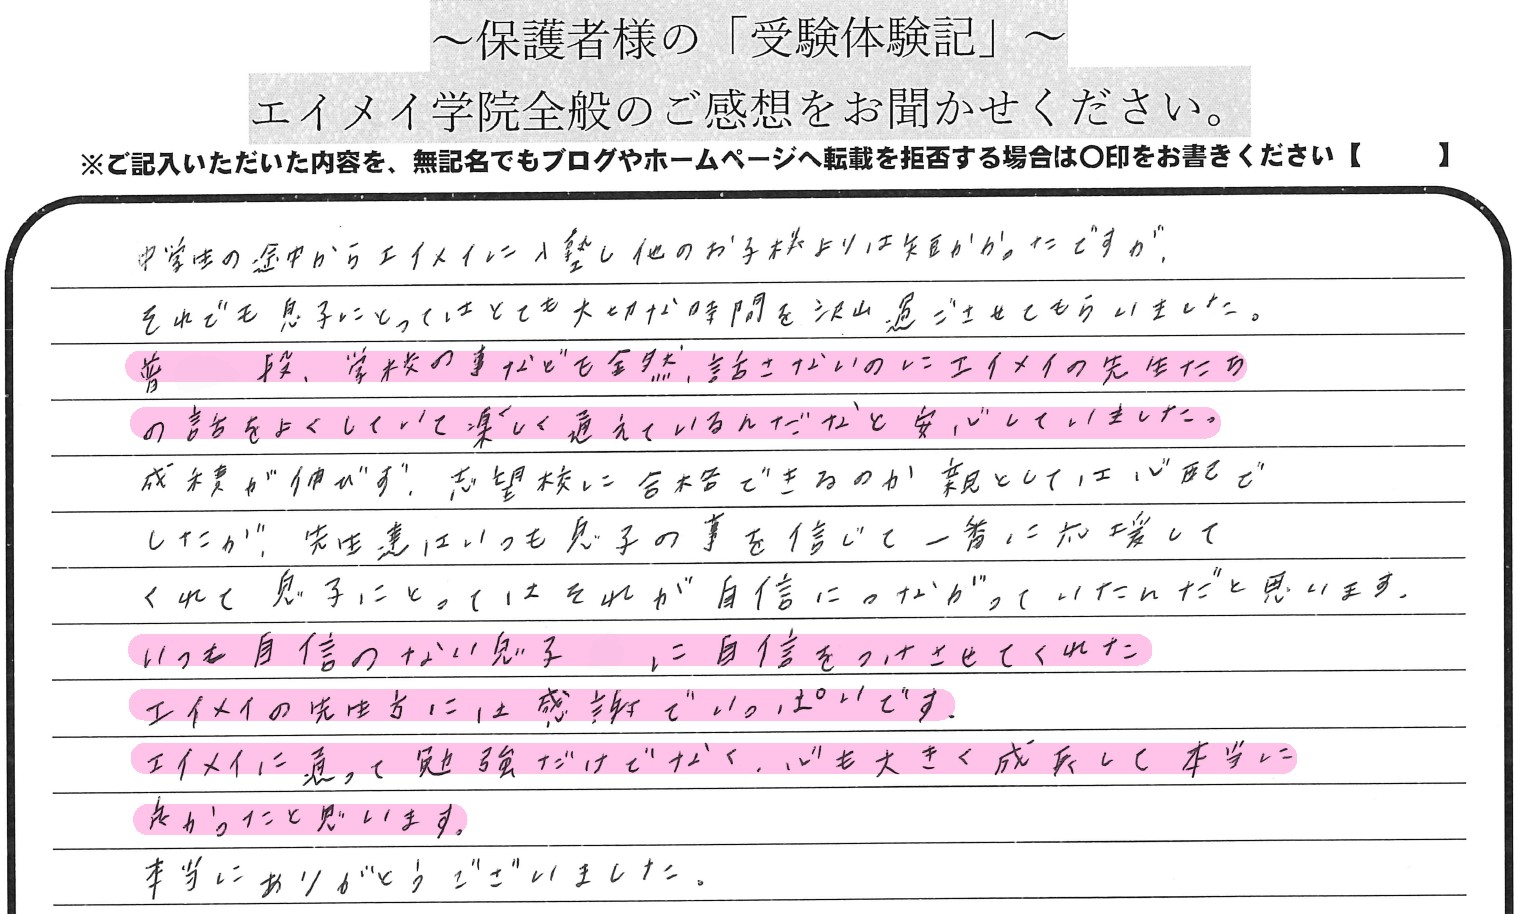 ～保護者様の「受験体験記」～
エイメイ学院全般のご感想をお聞かせください。
※ご記入いただいた内容を、無記名でもブログやホームページへ転載を拒否する場合は〇印をお書きください【　　　】
中学生の途中からエイメイに入塾し他のお子様よりは短かかったですが、
それでも息子にとってはとても大切な時間を沢山過ごさせてもらいました。
普　段、学校の事なども全然、話さないのにエイメイの先生たち
の話をよくしていて楽しく通えているんだなと安心していました。
成績が伸びず、志望校に合格できるのか親としては心配で
したが、先生達はいつも息子の事を信じて一番に応援して
くれて息子にとってはそれが自信につながっていたんだと思います。
いつも自信のない息子　に自信をつけさせてくれた
エイメイの先生方には感謝でいっぱいです。
エイメイに通って勉強だけでなく、心も大きく成長して本当に
良かったと思います。
本当にありがとうございました。